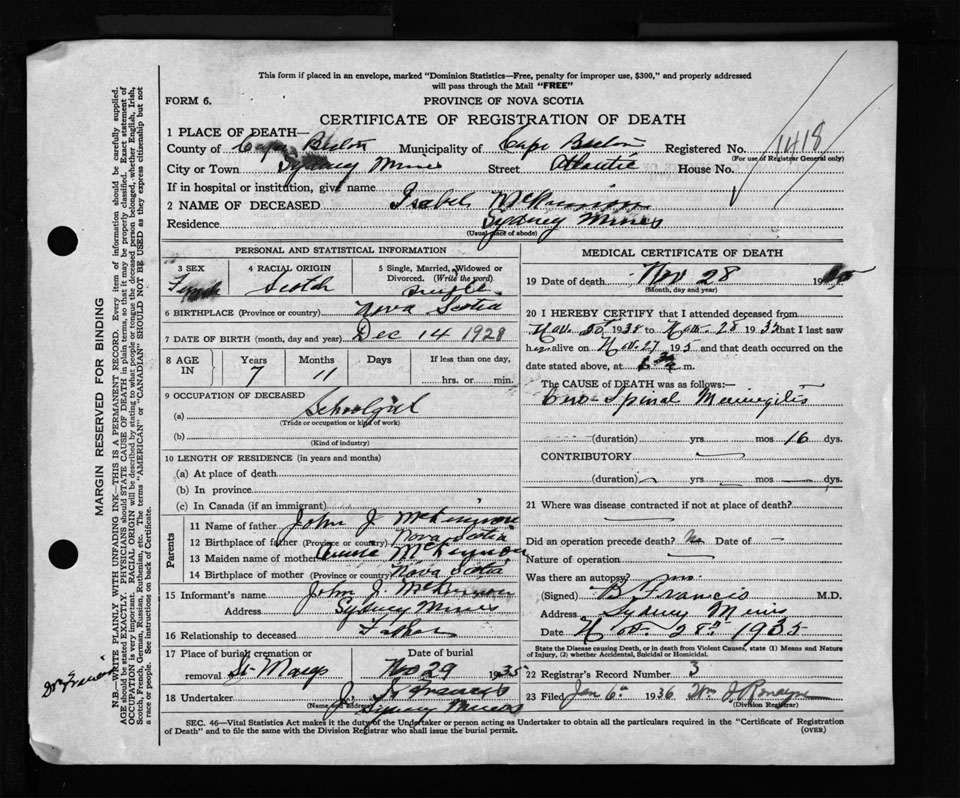 This form if placed in an envelope, marked "Dominion Statistics—Free, penalty for improper use, $300," and properly addressed
will pass through the Mail "FREE"
FORM 6.
PROVINCE OF NOVA SCOTIA
CERTIFICATE OF REGISTRATION OF DEATH
1 PLACE OF DEATH—
County of Cape Breton Municipality of Cape Breton Registered No. 1418
(For use of Registrar General only)
City or Town Sydney Mines Street Atlantic House No.
If in hospital or institution, give name
2 NAME OF DECEASED Isabel McKinnon
Residence Sydney Mines
(Usual place of abode)
PERSONAL AND STATISTICAL INFORMATION
3 SEX 4 RACIAL ORIGIN 5 Single, Married, Widowed or Divorced. (Write the word)
Female Scotch Single
6 BIRTHPLACE (Province or country) Nova Scotia
7 DATE OF BIRTH (month, day and year) Dec 14 1928
8 AGE IN Years Months Days If less than one day,
7 11 hrs. or min.
9 OCCUPATION OF DECEASED
(a) Schoolgirl
(Trade or occupation or kind of work)
(b)
(Kind of industry)
10 LENGTH OF RESIDENCE (in years and months)
(a) At place of death
(b) In province
(c) In Canada (if an immigrant)
Parents
11 Name of father John J McKinnon
12 Birthplace of father (Province or country) Nova Scotia
13 Maiden name of mother McKinnon
14 Birthplace of mother (Province or country) Nova Scotia
15 Informant's name John J. McKinnon
Address Sydney Mines
16 Relationship to deceased Father
17 Place of burial, cremation or removal St Marys Date of burial Nov 29 1935
18 Undertaker J. Francis
(Name and address) Sydney Mines
MEDICAL CERTIFICATE OF DEATH
19 Date of death Nov 28 19
(Month, day and year)
20 I HEREBY CERTIFY that I attended deceased from
19 to Nov. 28 1935 that I last saw
her alive on Nov. 27 1935 and that death occurred on the
date stated above, at m.
The CAUSE of DEATH was as follows:—
Spinal Meningitis
(duration) yrs mos 16 dys.
CONTRIBUTORY
(duration) yrs mos dys.
21 Where was disease contracted if not at place of death?
Did an operation precede death? No Date of
Nature of operation
Was there an autopsy? no
(Signed) B Francis M.D.
Address Sydney Mines
Date Nov. 28th 1935
State the Disease causing Death, or in death from Violent Causes, state (1) Means and Nature
of Injury, (2) whether Accidental, Suicidal or Homicidal.
22 Registrar's Record Number 3
23 Filed Jan 6th 1936 Wm J.
(Division Registrar)
SEC. 46—Vital Statistics Act makes it the duty of the Undertaker or person acting as Undertaker to obtain all the particulars required in the "Certificate of Registration
of Death" and to file the same with the Division Registrar who shall issue the burial permit.
(OVER)
MARGIN RESERVED FOR BINDING
N.B.—WRITE PLAINLY WITH UNFADING INK—THIS IS A PERMANENT RECORD. Every item of information should be carefully supplied.
AGE should be stated EXACTLY. PHYSICIANS should STATE CAUSE OF DEATH in plain terms, so that it may be properly classified. Exact statement of
OCCUPATION is very important. RACIAL ORIGIN will be described by stating to what people or tongue the deceased person belonged, whether English, Irish,
Scotch, French, German, Russian, Ruthenian, etc. The terms "AMERICAN" or "CANADIAN" SHOULD NOT BE USED as they express citizenship but not
a race or people. See instructions on back of Certificate.